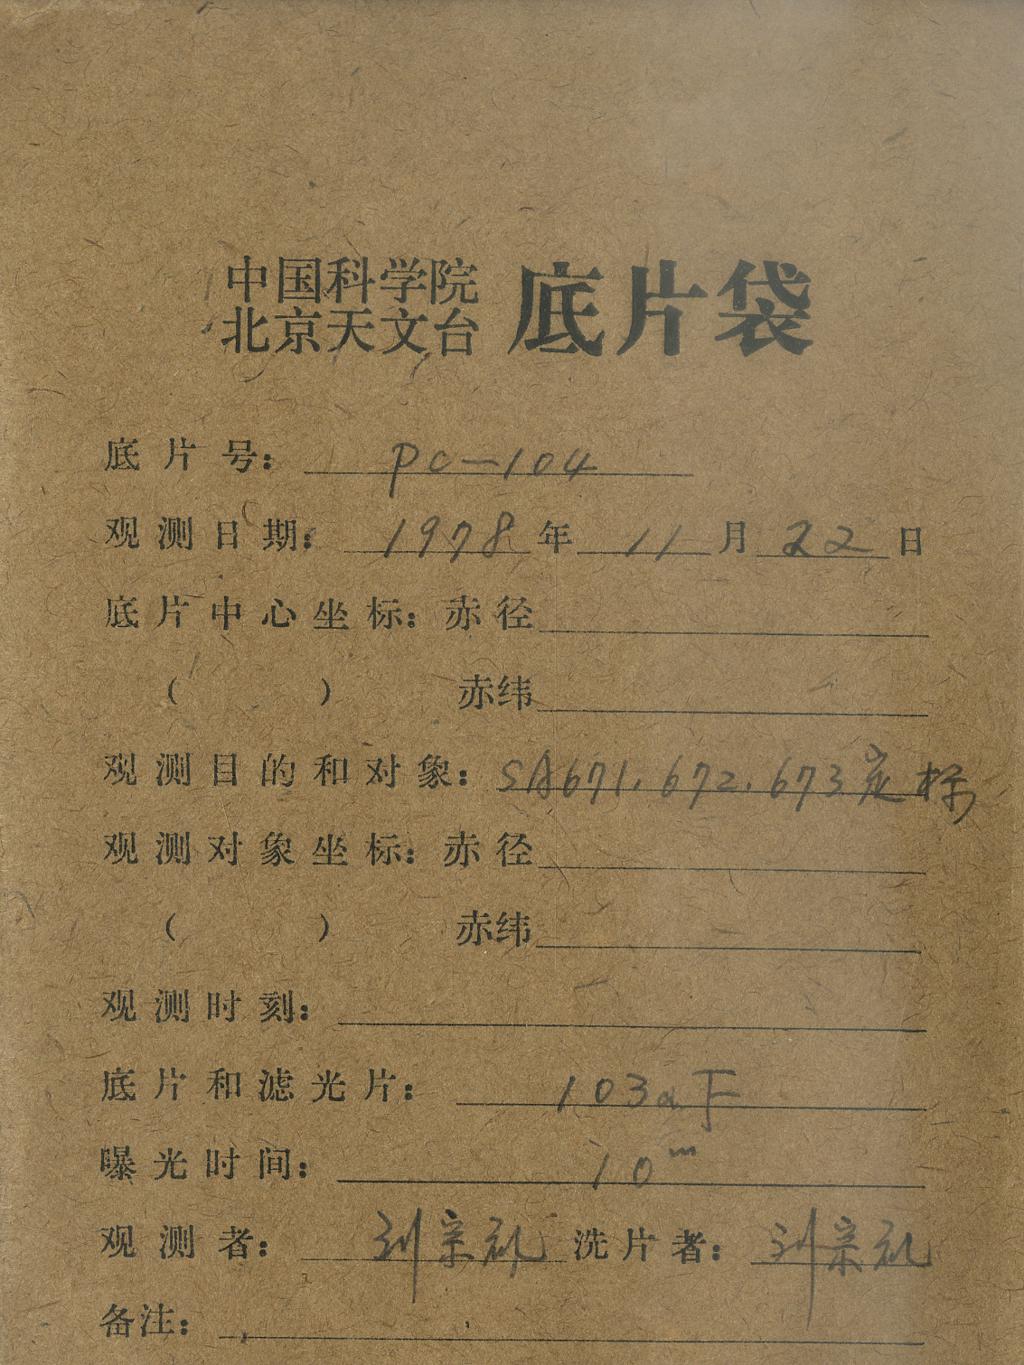 中国科学院
北京天文台 底片袋
底片号: PC-104
观测日期: 1978年11月22日
底片中心坐标: 赤径
( ) 赤纬
观测目的和对象: SA671.672.673定标
观测对象坐标: 赤径
( ) 赤纬
观测时刻:
底片和滤光片: 103aF
曝光时间: 10ᵐ
观测者: 刘宗礼 洗片者: 刘宗礼
备注: